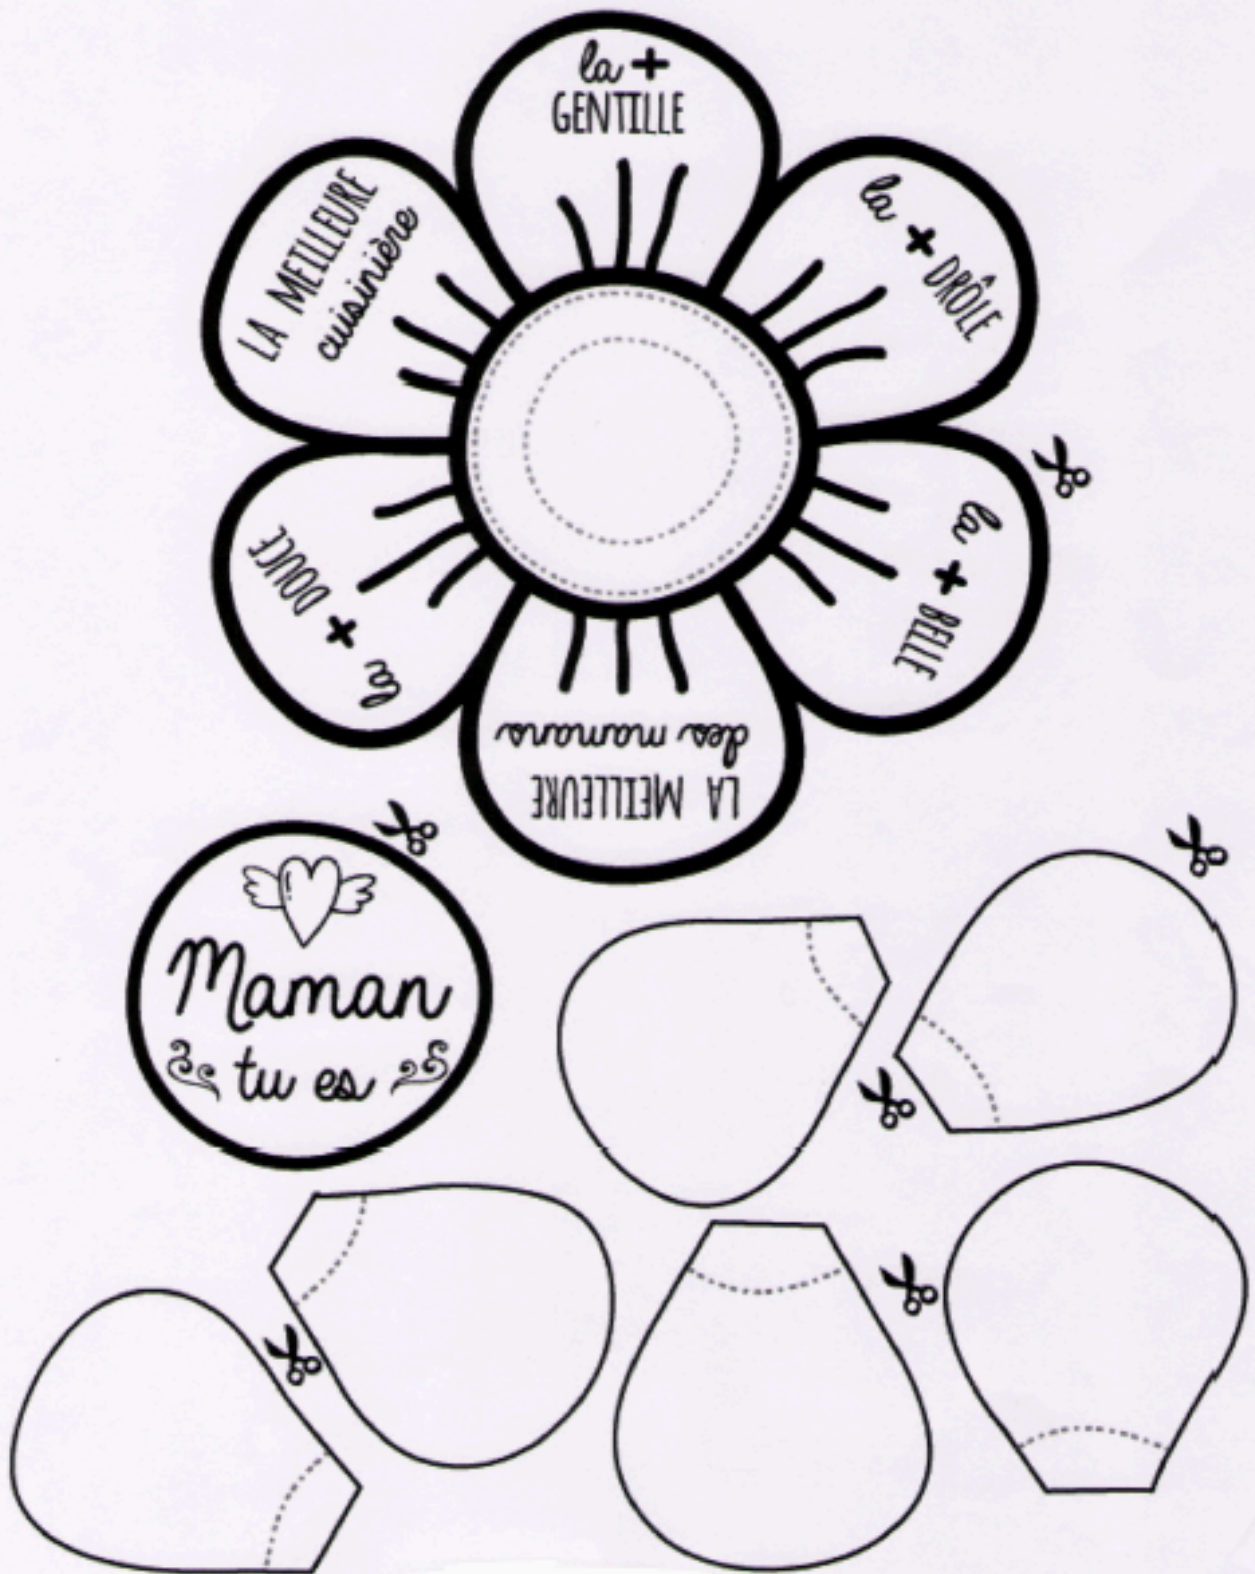 la +
GENTILLE
la + DRÔLE
la + BELLE
LA MEILLEURE
des mamans
la + DOUCE
LA MEILLEURE
cuisinière
Maman
tu es